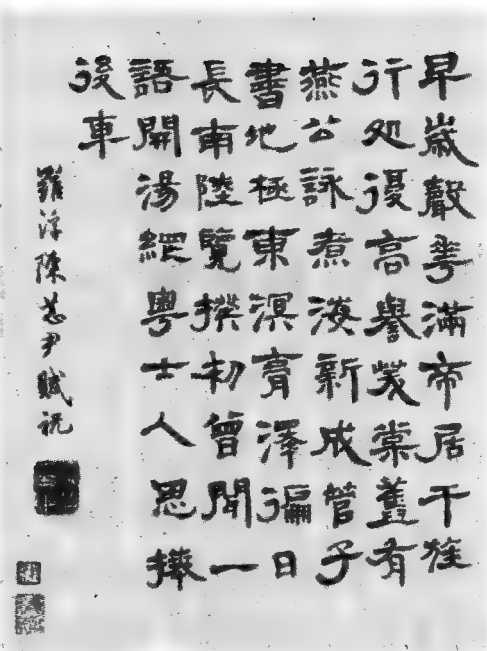 早歲聲華滿帝居干旌
行処優高譽茇棠舊有
燕公詠煮海新成管子
書地極東溟膏澤徧日
長南陸覽揆初曾聞一
語開湯網粵士人思捧
後車
羅浮陳恭尹賦祝